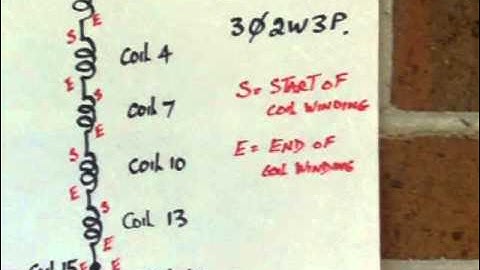 E
3Ø2W3P.
S
E
Coil 4
S = START OF
COIL WINDING
S
E
Coil 7
E = END OF
COIL WINDING
S
E
Coil 10
S
E
Coil 13
E
Coil 15
E
E